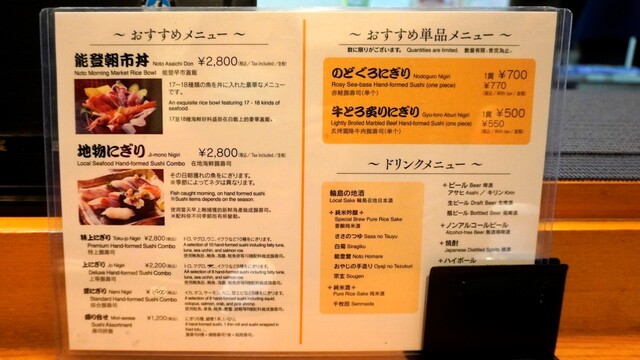 ～ おすすめメニュー ～
能登朝市丼 Noto Asaichi Don ¥2,800 (税込／Tax included／含税)
Noto Morning Market Rice Bowl 能登早市蓋飯
17～18種類の魚を丼に入れた豪華なメニュー
です。
An exquisite rice bowl featuring 17 - 18 kinds of
seafood.
地物にぎり Ji-mono Nigiri ¥2,800 (税込／Tax included／含税)
Local Seafood Hand-formed Sushi Combo 在地海鮮握壽司
その日朝獲れの魚をにぎります。
※季節によってネタは異なります。
Fish caught morning, on hand formed sushi
※Sushi items depends on the season.
特上にぎり Toku-jo Nigiri ¥2,800 (税込)
Premium Hand-formed Sushi Combo
特上握壽司
トロ、マグロ、ウニ、イクラなど10種をにぎります。
A selection of 10 hand-formed sushi including fatty tuna,
tuna, sea urchin, and salmon roe.
上にぎり Jo Nigiri ¥2,200 (税込)
Deluxe Hand-formed Sushi Combo
上等握壽司
tuna, sea urchin, and salmon roe.
並にぎり Nami Nigiri
Standard Hand-formed Sushi Combo
A selection of 8 hand-formed sushi including squid,
octopus, salmon, crab stick, and pico shrimp.
盛り合せ Mori-awase ¥1,200 (税込)
Sushi Assortment
壽司拼盤
～ おすすめ単品メニュー ～
数に限りがございます。 Quantities are limited. 數量有限，售完為止。
のどぐろにぎり Nodoguro Nigiri 1貫 ¥700
Rosy Sea-bass Hand-formed Sushi (one piece) ¥770
赤鯥握壽司(单个)
牛とろ炙りにぎり Gyu-toro Aburi Nigiri 1貫 ¥500
Lightly Broiled Marbled Beef Hand-formed Sushi (one piece) ¥550
炙烤霜降牛肉握壽司(单个)
～ ドリンクメニュー ～
輪島の地酒
Local Sake 輪島在地日本酒
＋純米吟醸＋
Special Brew Pure Rice Sake
ささのつゆ Sasa no Tsuyu
白菊 Siragiku
能登誉 Noto Homare
おやじの手造り Oyaji no Tezukuri
宗玄 Sougen
＋純米酒＋
Pure Rice Sake 純米酒
千枚田 Senmaida
＋ビール Beer 啤酒
アサヒ Asahi ／ キリン Kirin
生ビール Draft Beer 生啤酒
瓶ビール Bottled Beer 瓶啤酒
＋ノンアルコールビール
Alcohol-free Beer 無酒精啤酒
＋焼酎
Japanese Distilled Spirits 燒酒
＋ハイボール